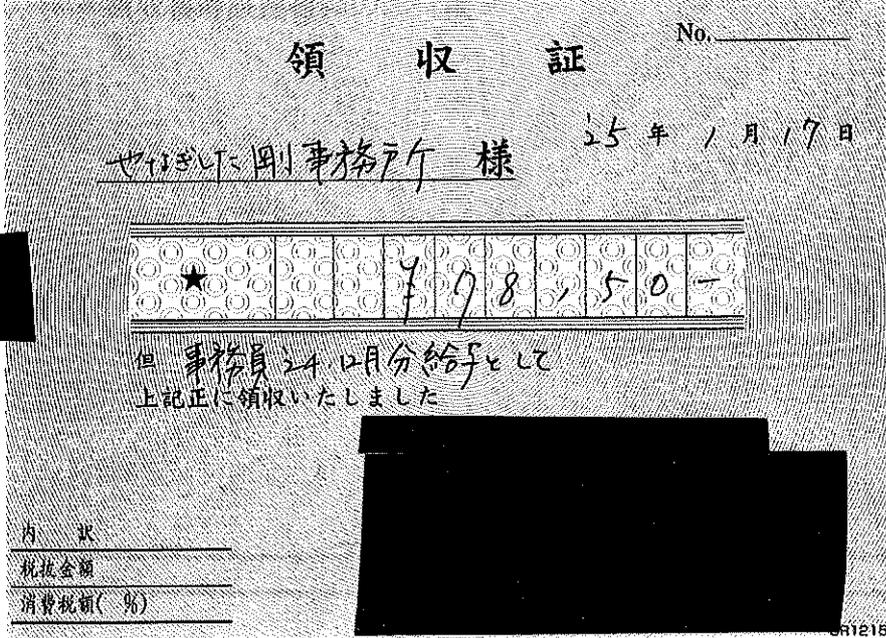 領収証
No.
'25年1月17日
やなぎした剛事務所 様
★ ¥78150-
但 事務員'24.12月分給与として
上記正に領収いたしました
内訳
税抜金額
消費税額( %)